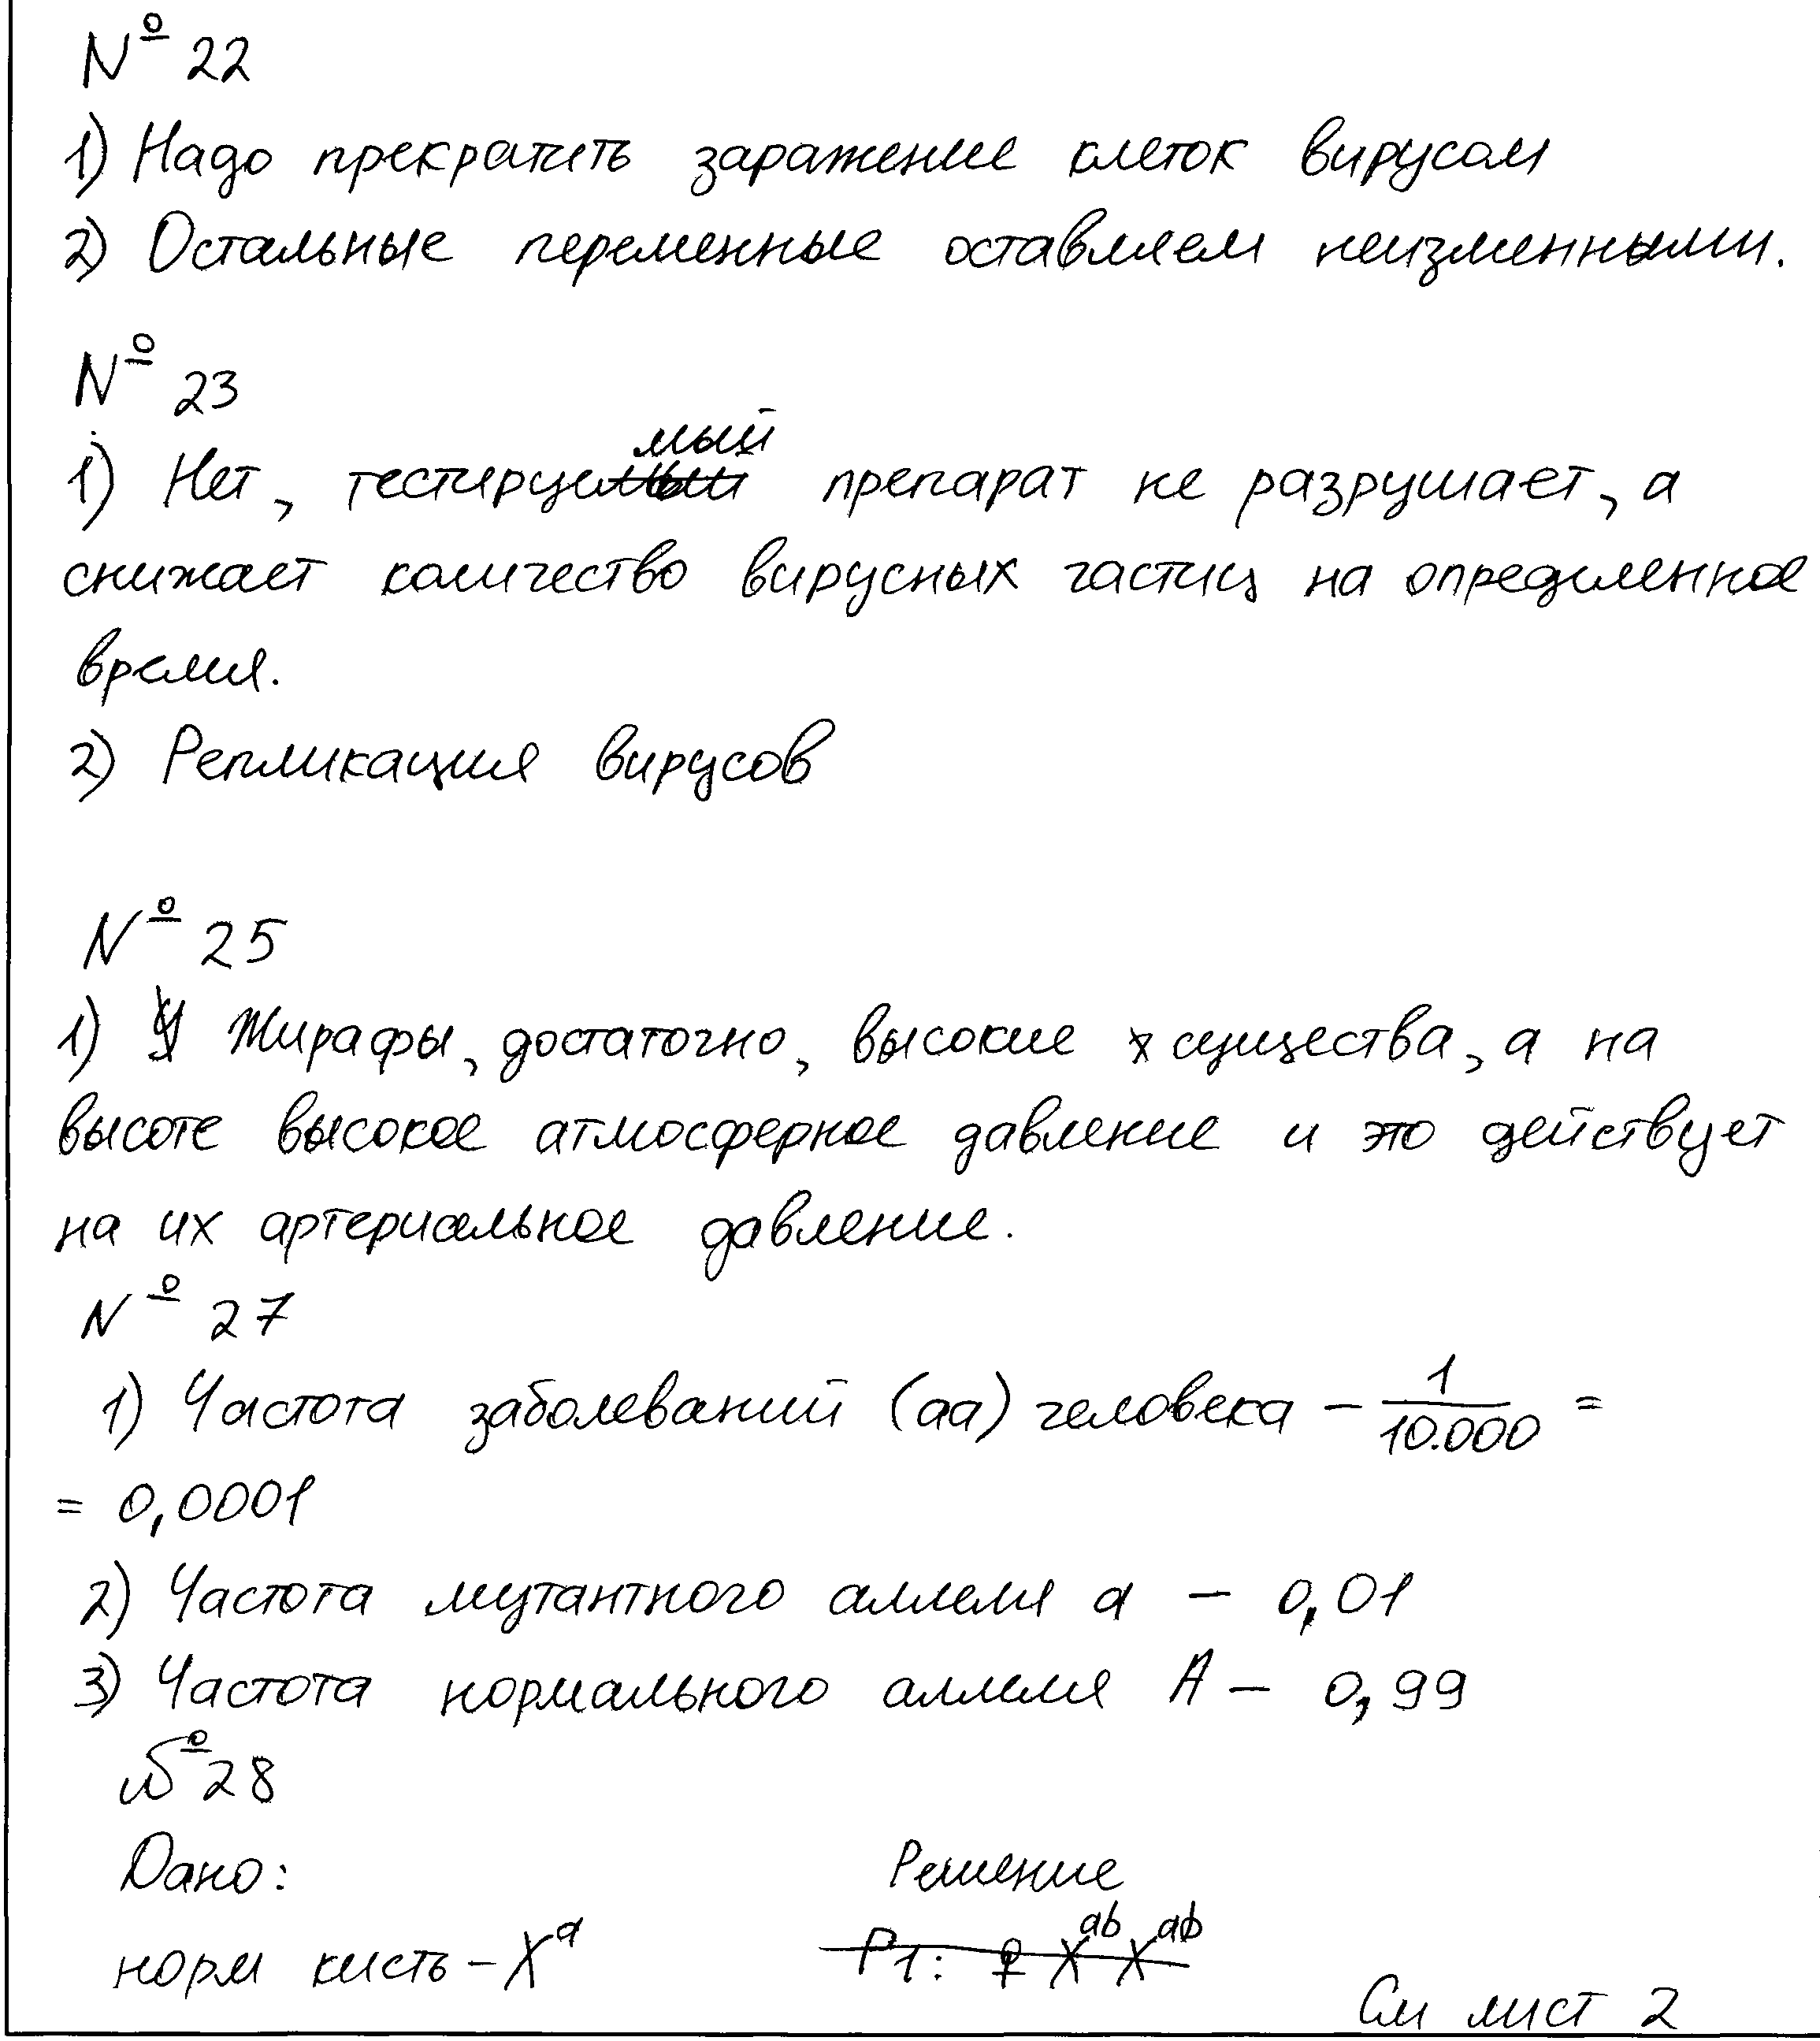 № 22
1) Надо прекратить заражение клеток вирусом
2) Остальные переменные оставляем неизменными.
№ 23
1) Нет, тестируемый препарат не разрушает, а
снижает количество вирусных частиц на определенное
время.
2) Репликация вирусов
№ 25
1) Жирафы, достаточно, высокие существа, а на
высоте высокое атмосферное давление и это действует
на их артериальное давление.
№ 27
1) Частота заболеваний (aa) человека – 1/10.000 =
= 0,0001
2) Частота мутантного аллеля a – 0,01
3) Частота нормального аллеля A – 0,99
№ 28
Дано: Решение
норм кисть – X^a P1: ♀ X^ab X^ab
См лист 2